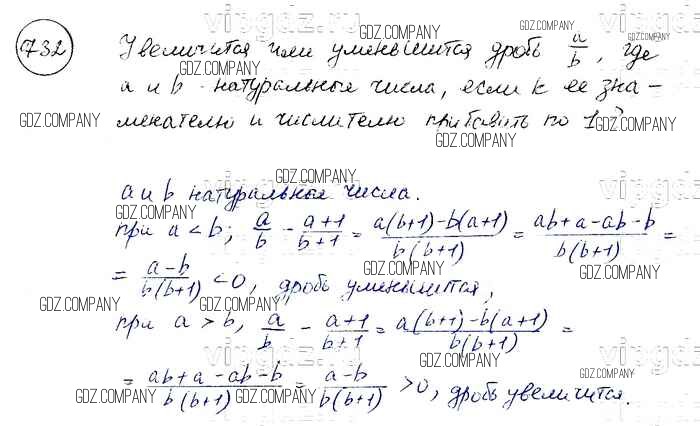 732
Увеличится или уменьшится дробь a/b, где
a и b - натуральные числа, если к ее зна-
менателю и числителю прибавить по 1?
a и b натуральные числа.
при a < b; a/b - (a+1)/(b+1) = (a(b+1)-b(a+1))/(b(b+1)) = (ab+a-ab-b)/(b(b+1)) =
= (a-b)/(b(b+1)) < 0, дробь уменьшится,
при a > b, a/b - (a+1)/(b+1) = (a(b+1)-b(a+1))/(b(b+1)) =
= (ab+a-ab-b)/(b(b+1)) = (a-b)/(b(b+1)) > 0, дробь увеличится.
GDZ.COMPANY
vipgdz